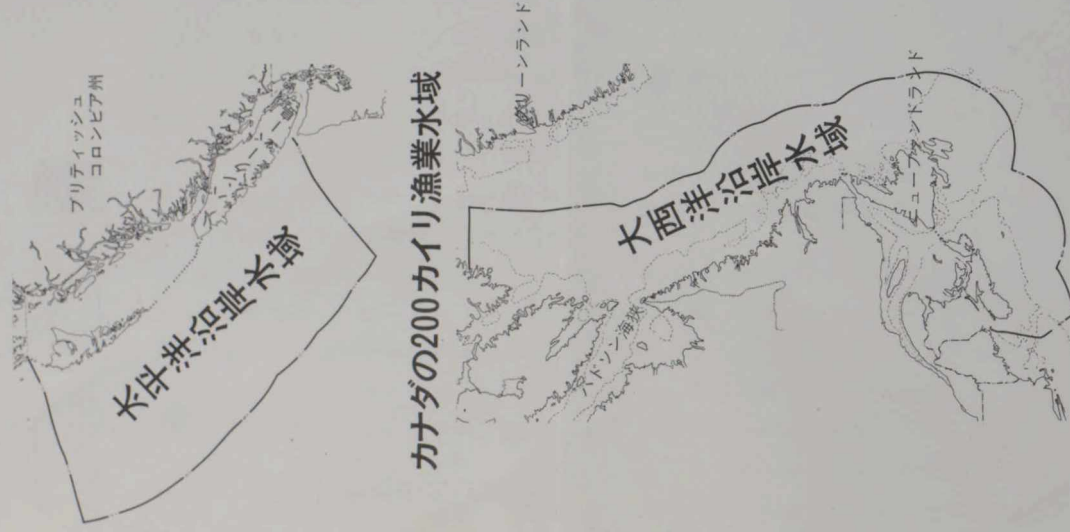 カナダの200カイリ漁業水域
ブリティッシュ
コロンビア州
太平洋沿岸水域
大西洋沿岸水域
ハドソン海峡
ニューファンドランド